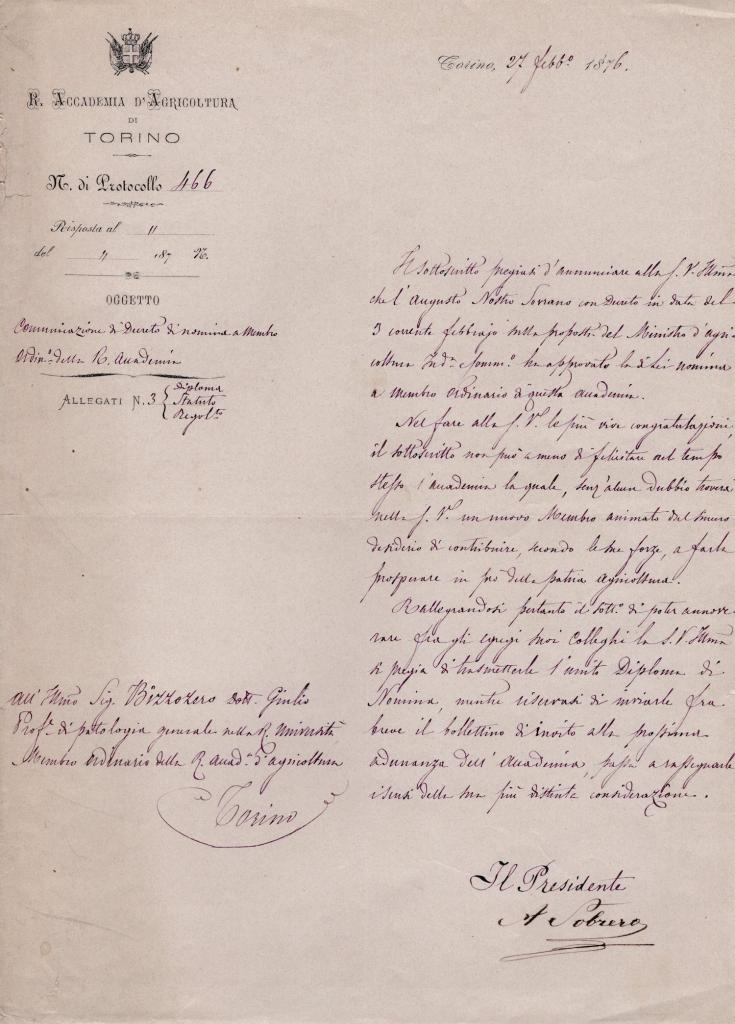 R. ACCADEMIA D'AGRICOLTURA
DI
TORINO
N. di Protocollo 466
Risposta al "
del " 187 N.
OGGETTO
Comunicazione di Decreto di nomina a Membro
Ordin.º della R. Accademia
ALLEGATI N. 3 { Diploma
Statuto
Regol.to
Torino, 27 febb.º 1876.
Il sottoscritto pregiasi d'annunciare alla S. V. Illma
che l'Augusto Nostro Sovrano con Decreto in data del
3 corrente febbrajo sulla proposta del Ministro d'agri
coltura Ind.a Comm.º ha approvato la di Lei nomina
a membro ordinario di questa accademia.
Nel fare alla S. V. le più vive congratulazioni,
il sottoscritto non può a meno di felicitare nel tempo
stesso l'accademia la quale, senz'alcun dubbio troverà
nella S. V. un nuovo Membro animato dal sincero
desiderio di contribuire, secondo le sue forze, a farla
prosperare in prò della patria agricoltura.
Rallegrandosi pertanto il sott.º di poter annove
rare fra gli egregi suoi Colleghi la S. V. Illma
si pregia di trasmetterle l'unito Diploma di
Nomina, mentre riservasi di inviarle fra
breve il bollettino di invito alla prossima
adunanza dell'Accademia, passa a rassegnarle
i sensi della sua più distinta considerazione.
All'Illmo Sig. Bizzozero Dott. Giulio
Prof.e di patologia generale nella R. Università
Membro ordinario della R. Accad.a d'agricoltura
Torino
Il Presidente
A Sobrero